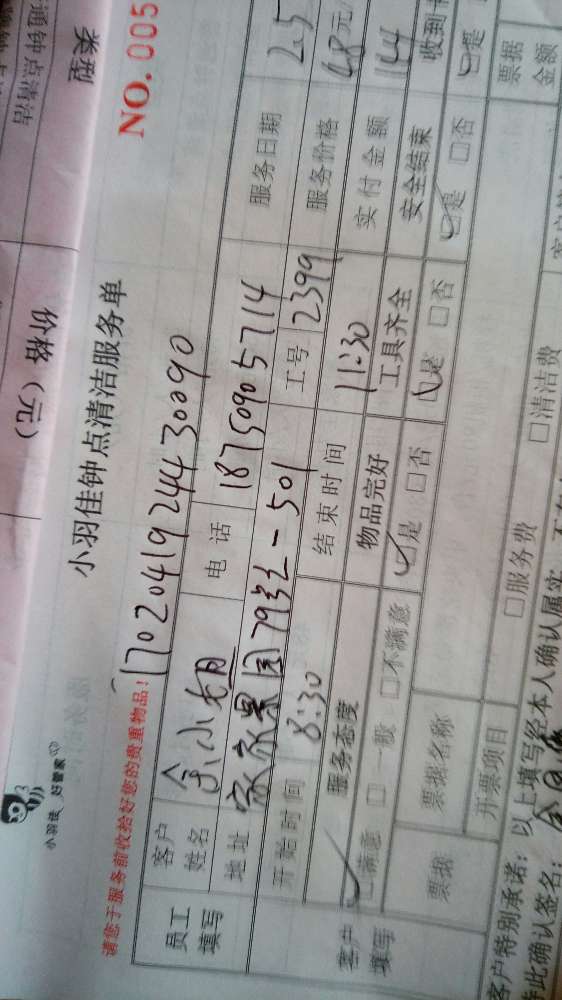 价格（元）
通钟点清洁
NO.005
小羽佳 好管家
小羽佳钟点清洁服务单
请您于服务前收拾好您的贵重物品！
17020419244430090
员工填写
客户姓名 余小姐 电话 18750905714 服务日期 2.5
地址 家家景园79号-501 工号 2399 服务价格 48元/
开始时间 8:30 结束时间 11:30 实付金额 144
客户填写
服务态度 物品完好 工具齐全 安全结束 收到
☑满意 □一般 □不满意 ☑是 □否 ☑是 □否 ☑是 □否 ☑是
票据 票据名称 票据金额
开票项目 □服务费 □清洁费
客户特别承诺：以上填写经本人确认属实，
特此确认签名：